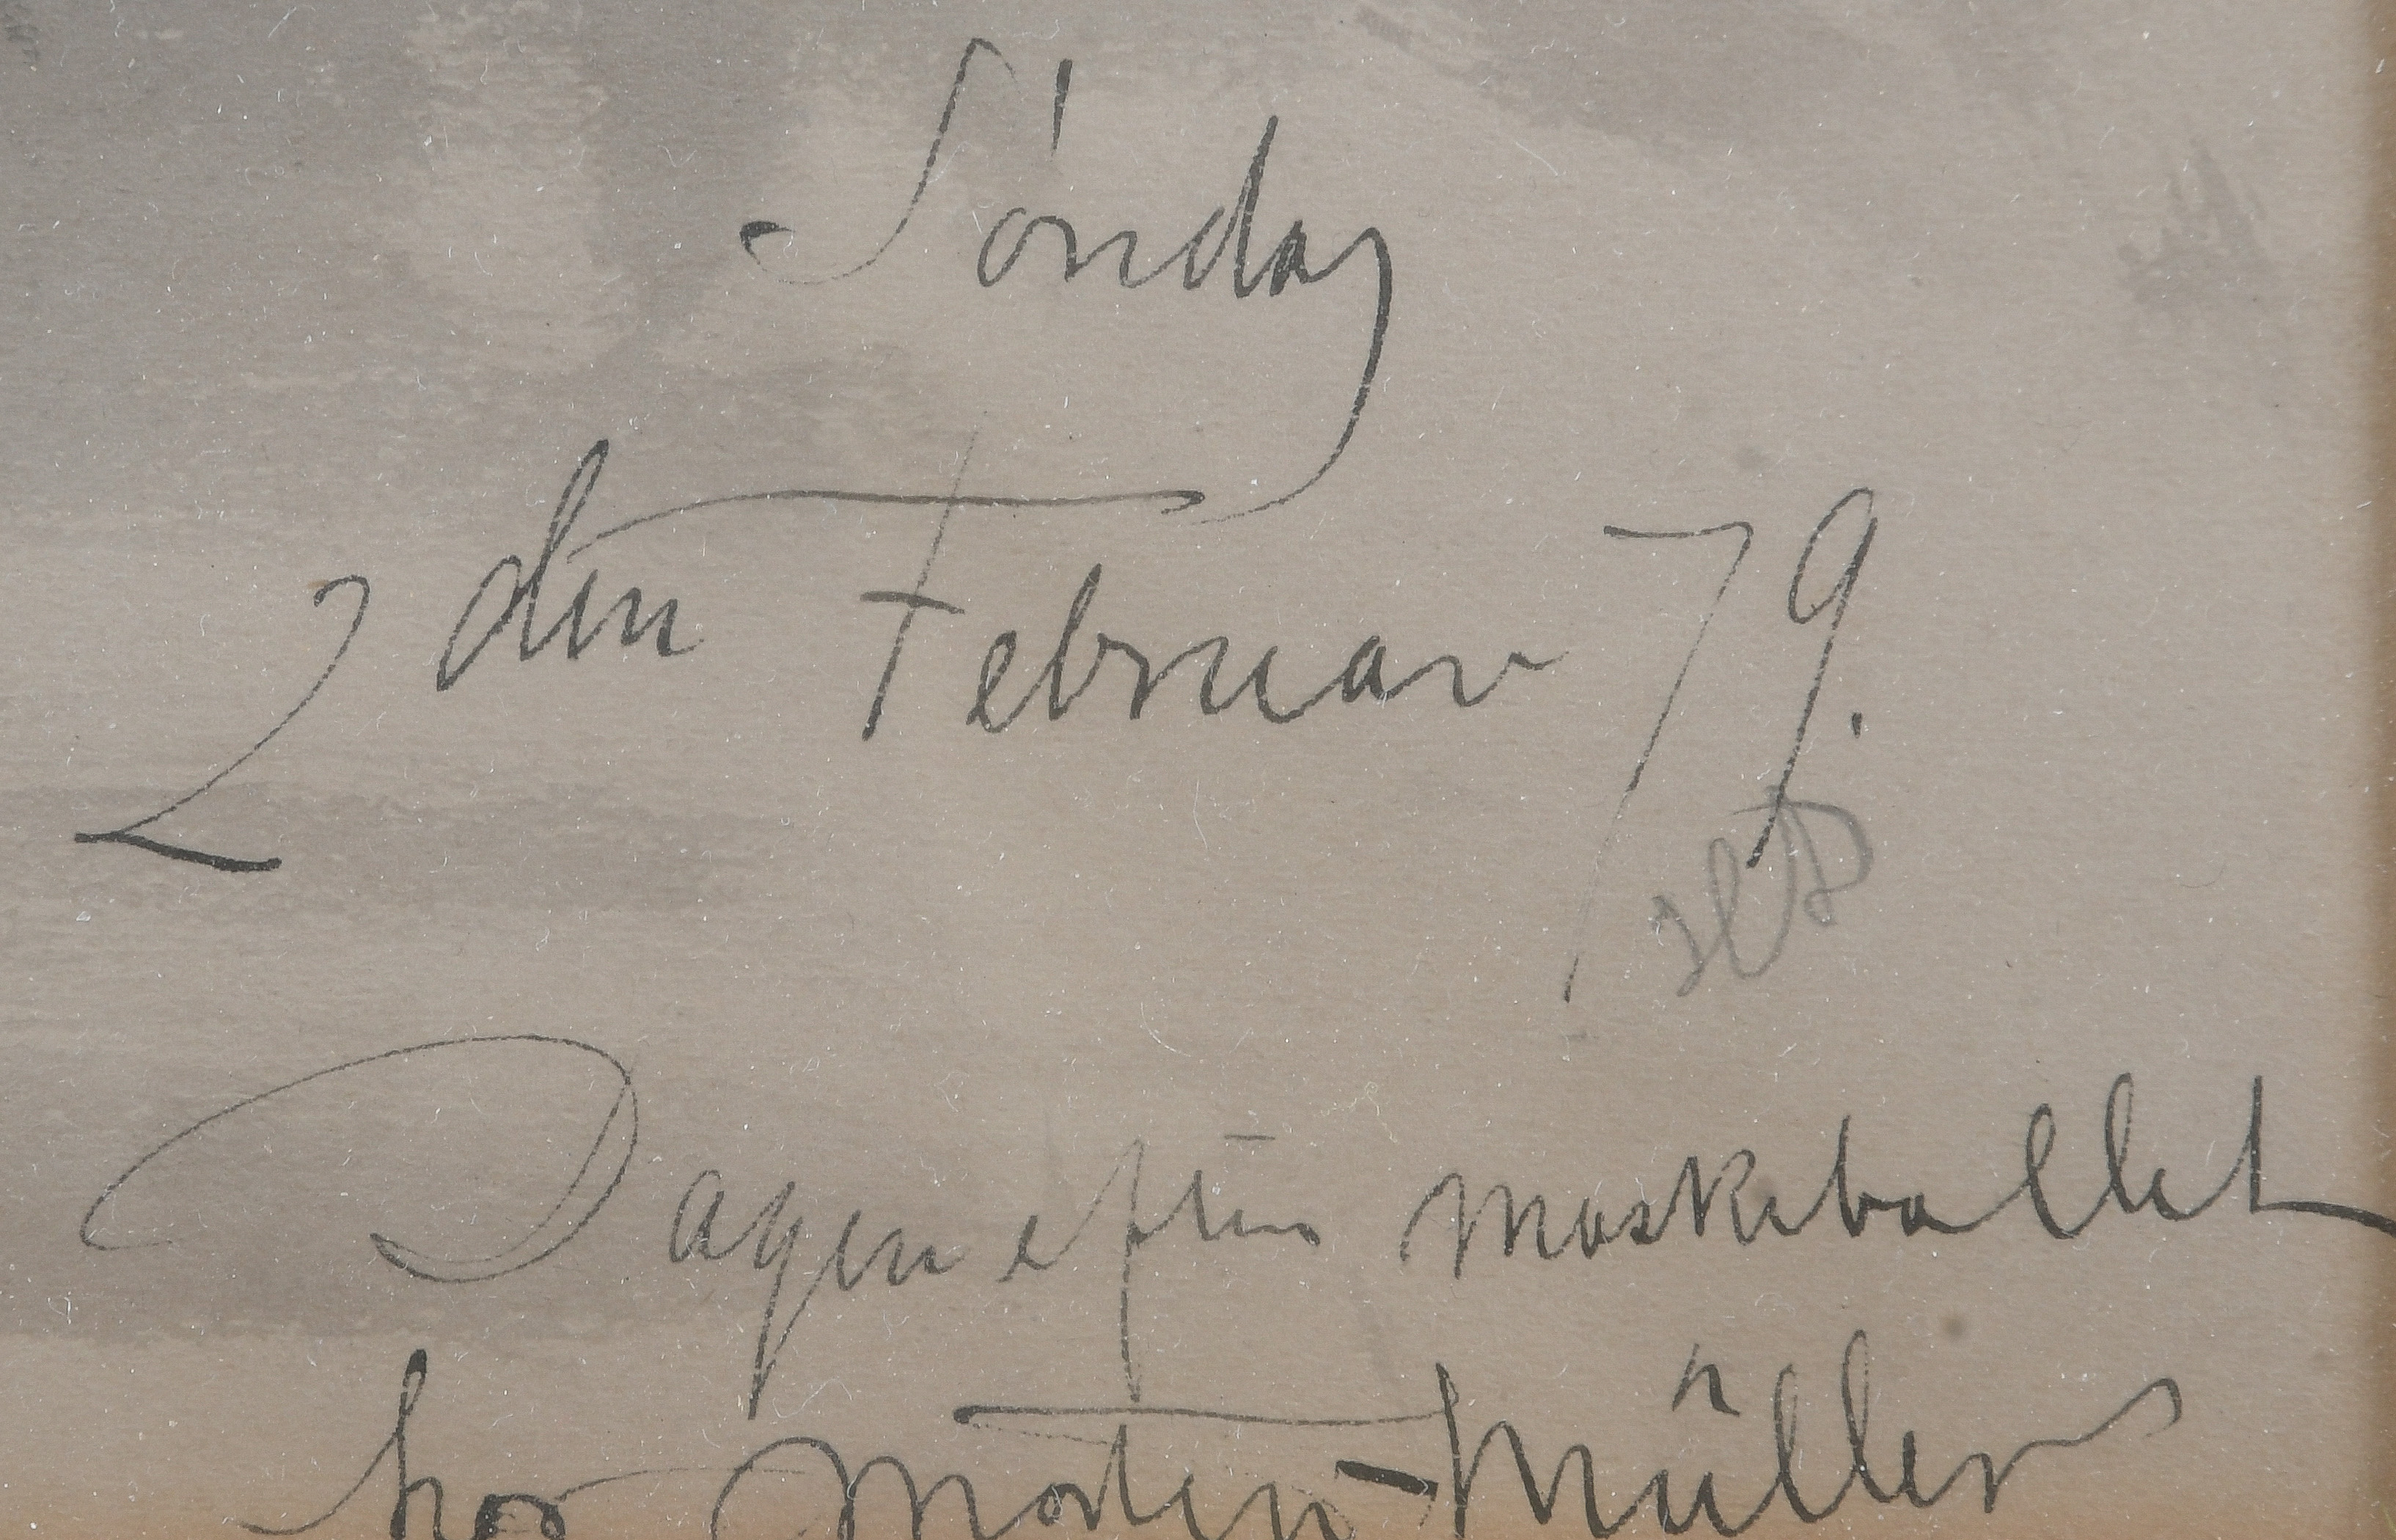 Søndag
2den Februar 79.
Dagen efter maskeballet
hos Morten-Müllers